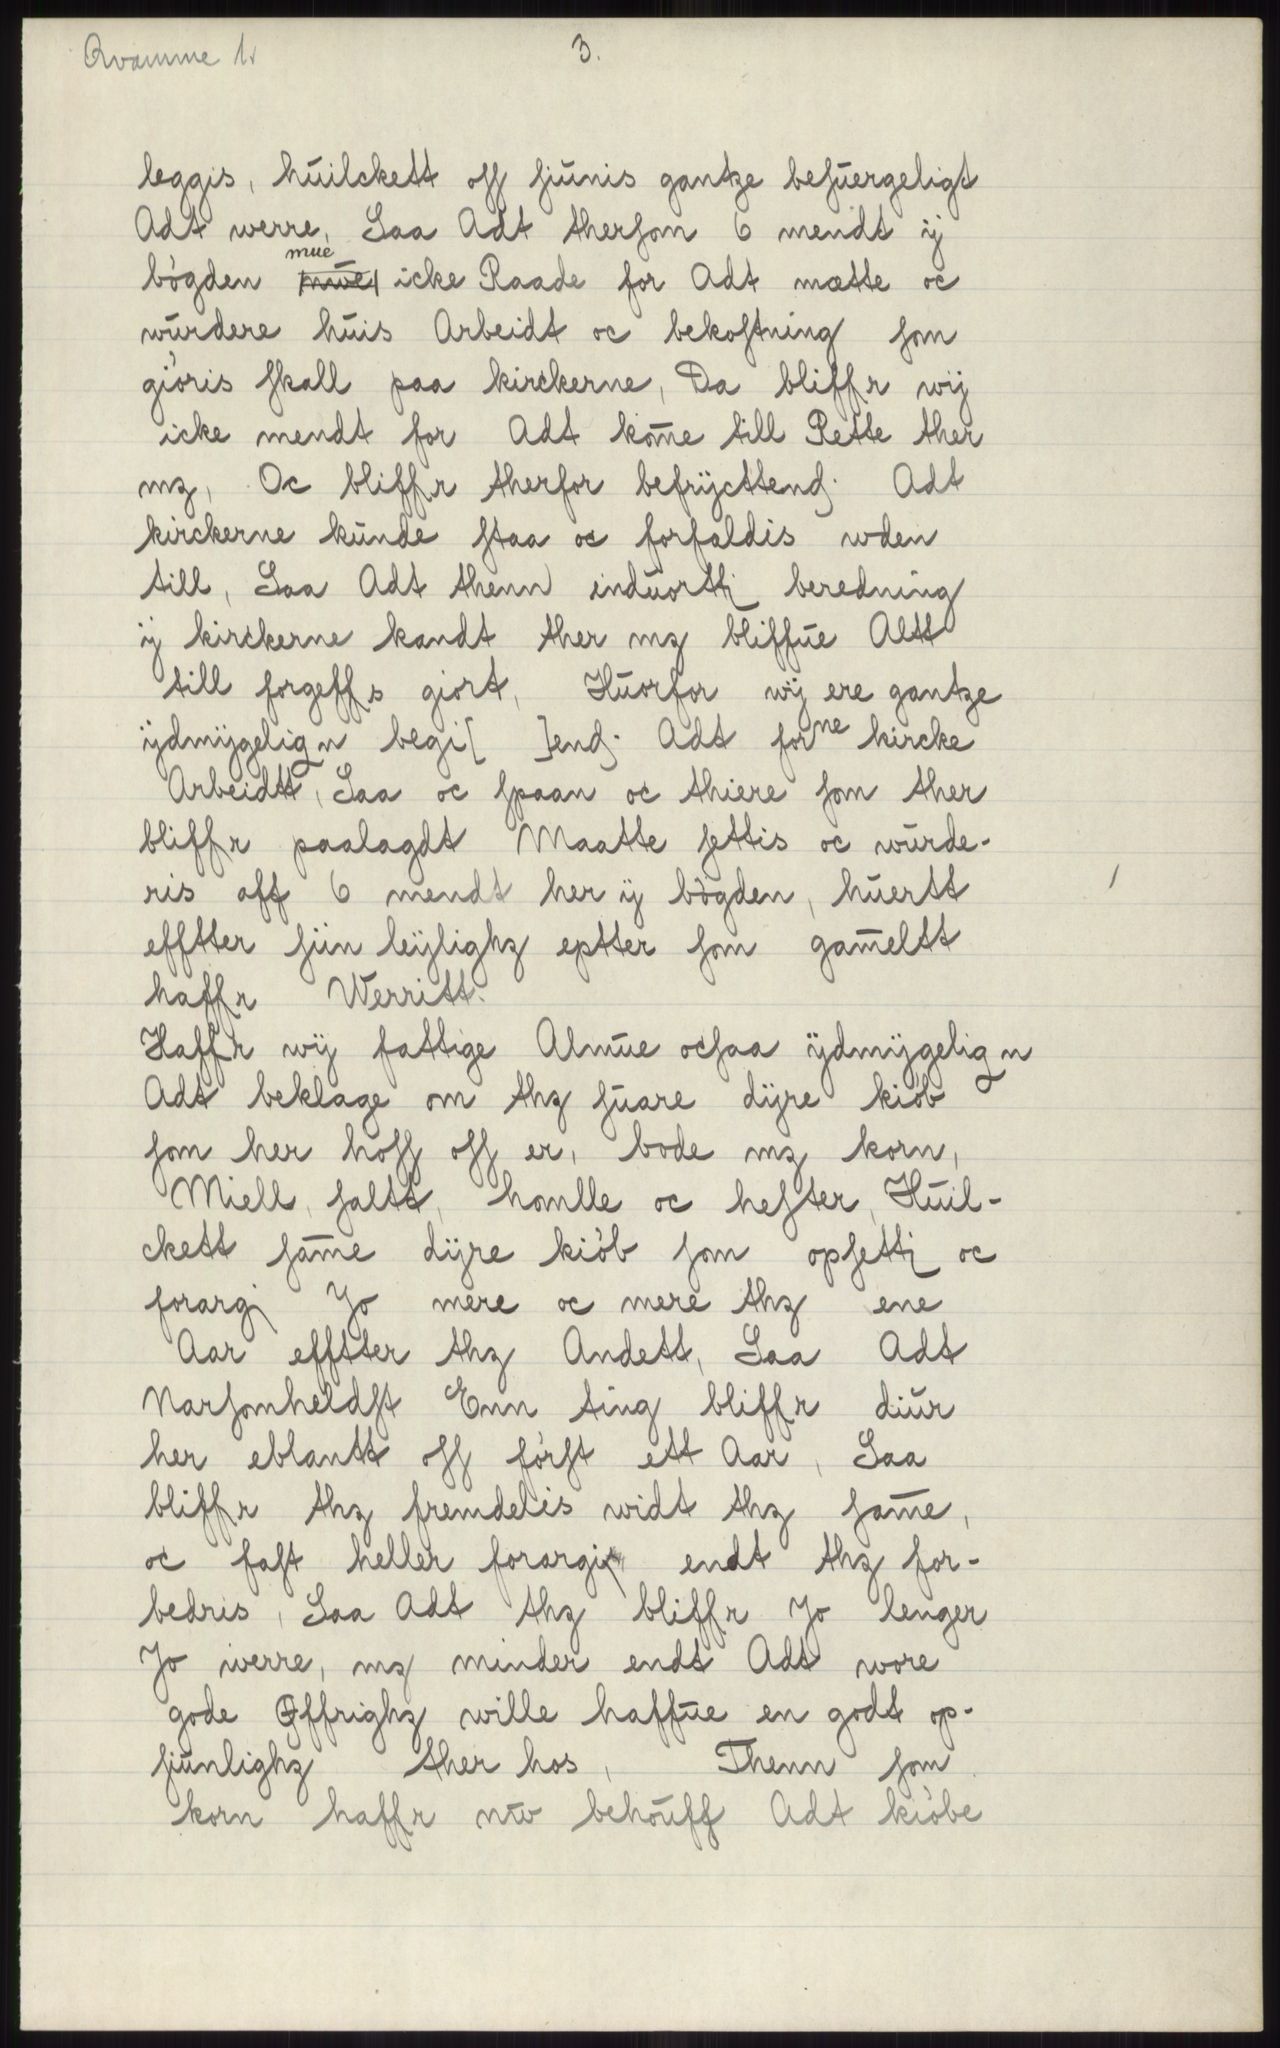 Qvamme 1.
3.
leggis, huilckett oss siunis gantze besuergeligt
Adt werre, Saa Adt thersom 6 mendt ÿ
bögden mue icke Raade for Adt mætte oc
wurdere huis Arbeidt oc bekostning som
giöris skall paa kirckerne, Da bliffr wij
icke mendt for Adt kom̄e till Rette ther
mz, Oc bliffr therfor befrÿcttend. Adt
kirckerne kunde staa oc forfaldis wden
till, Saa Adt thenn induortj beredning
ÿ kirckerne kandt ther mz bliffue Altt
till forgeffs giort, Huorfor wij ere gantze
ÿdmÿgelign begi[ ]end. Adt forne kircke
Arbeidtt, Saa oc spaan oc thiere som ther
bliffr paalagdt Maatte settis oc wurde-
ris aff 6 mendt her ÿ bögden, huertt
efftter siin leÿlighz eptter som gam̄eltt
haffr Werritt.
Haffr wij fattige Almue ocsaa ÿdmÿgelign
Adt beklage om thz suare dÿre kiöb
som her hoss oss er, bode mz korn,
Miell, saltt, homlle oc hester, Huil-
ckett sam̄e dÿre kiöb som opsettj oc
forargj Jo mere oc mere thz ene
Aar efftter thz Andett, Saa Adt
Narsomheldst Enn ting bliffr diur
her eblantt oss först ett Aar, Saa
bliffr thz fremdelis widt thz sam̄e,
oc fast heller forargis endt thz for-
bedris, Saa Adt thz bliffr Jo lenger
Jo werre, mz minder endt Adt wore
gode Öffrighz wille haffue en godt op-
siunlighz ther hos, Thenn som
korn haffr nw behouff Adt kiöbe